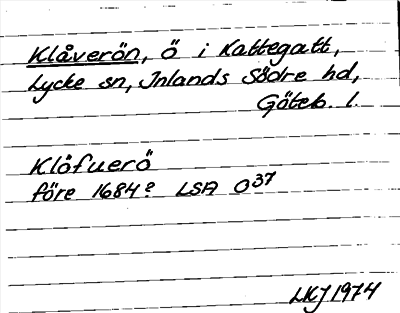 Klåverön, ö i Kattegatt,
Lycke sn, Inlands Södre hd,
Göteb. l.
Klöfuerö
före 1684? LSA O37
LKJ 1974